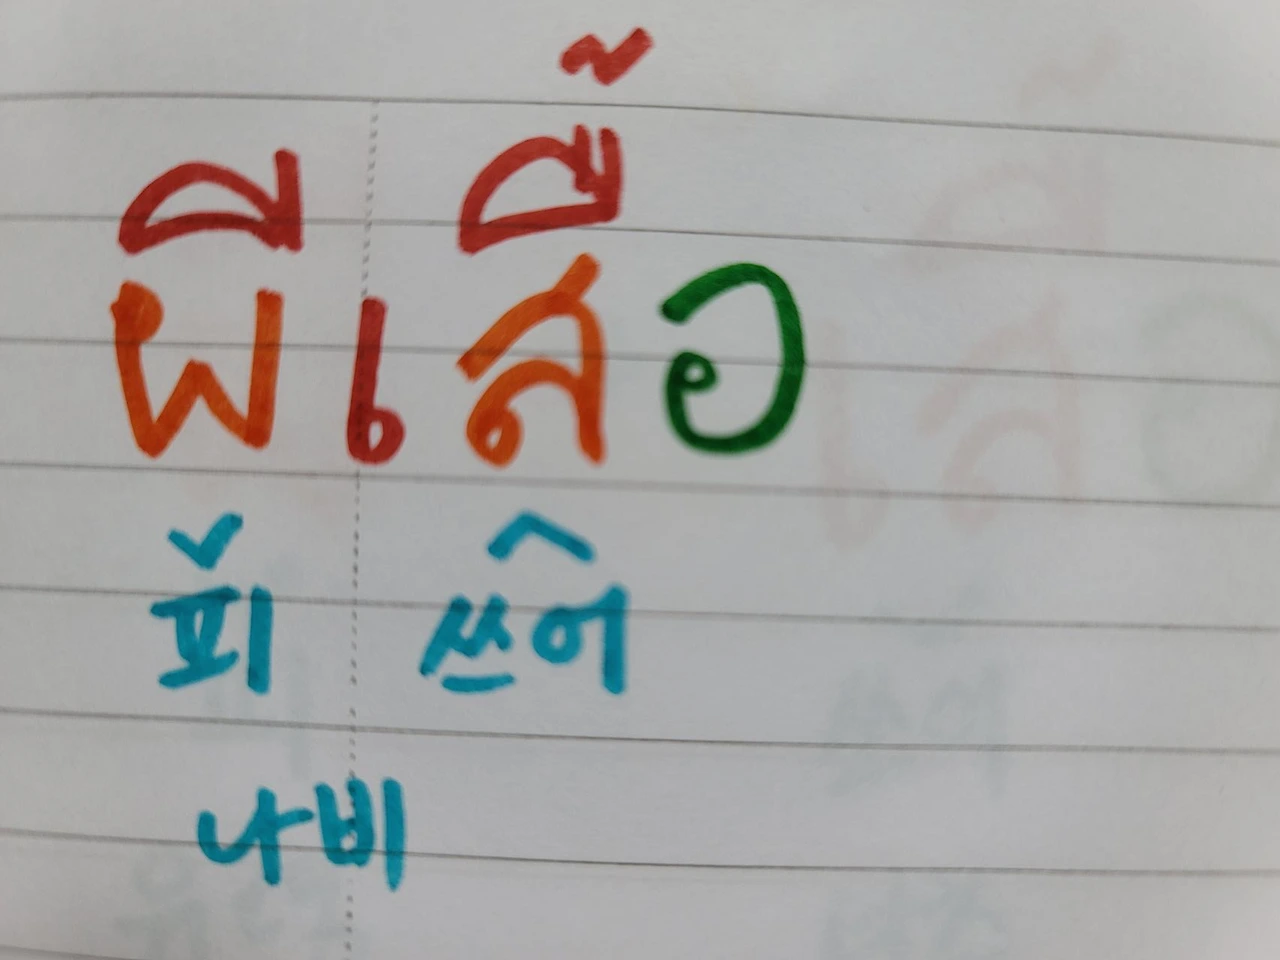 ผีเสื้อ
피 쓰어
나비